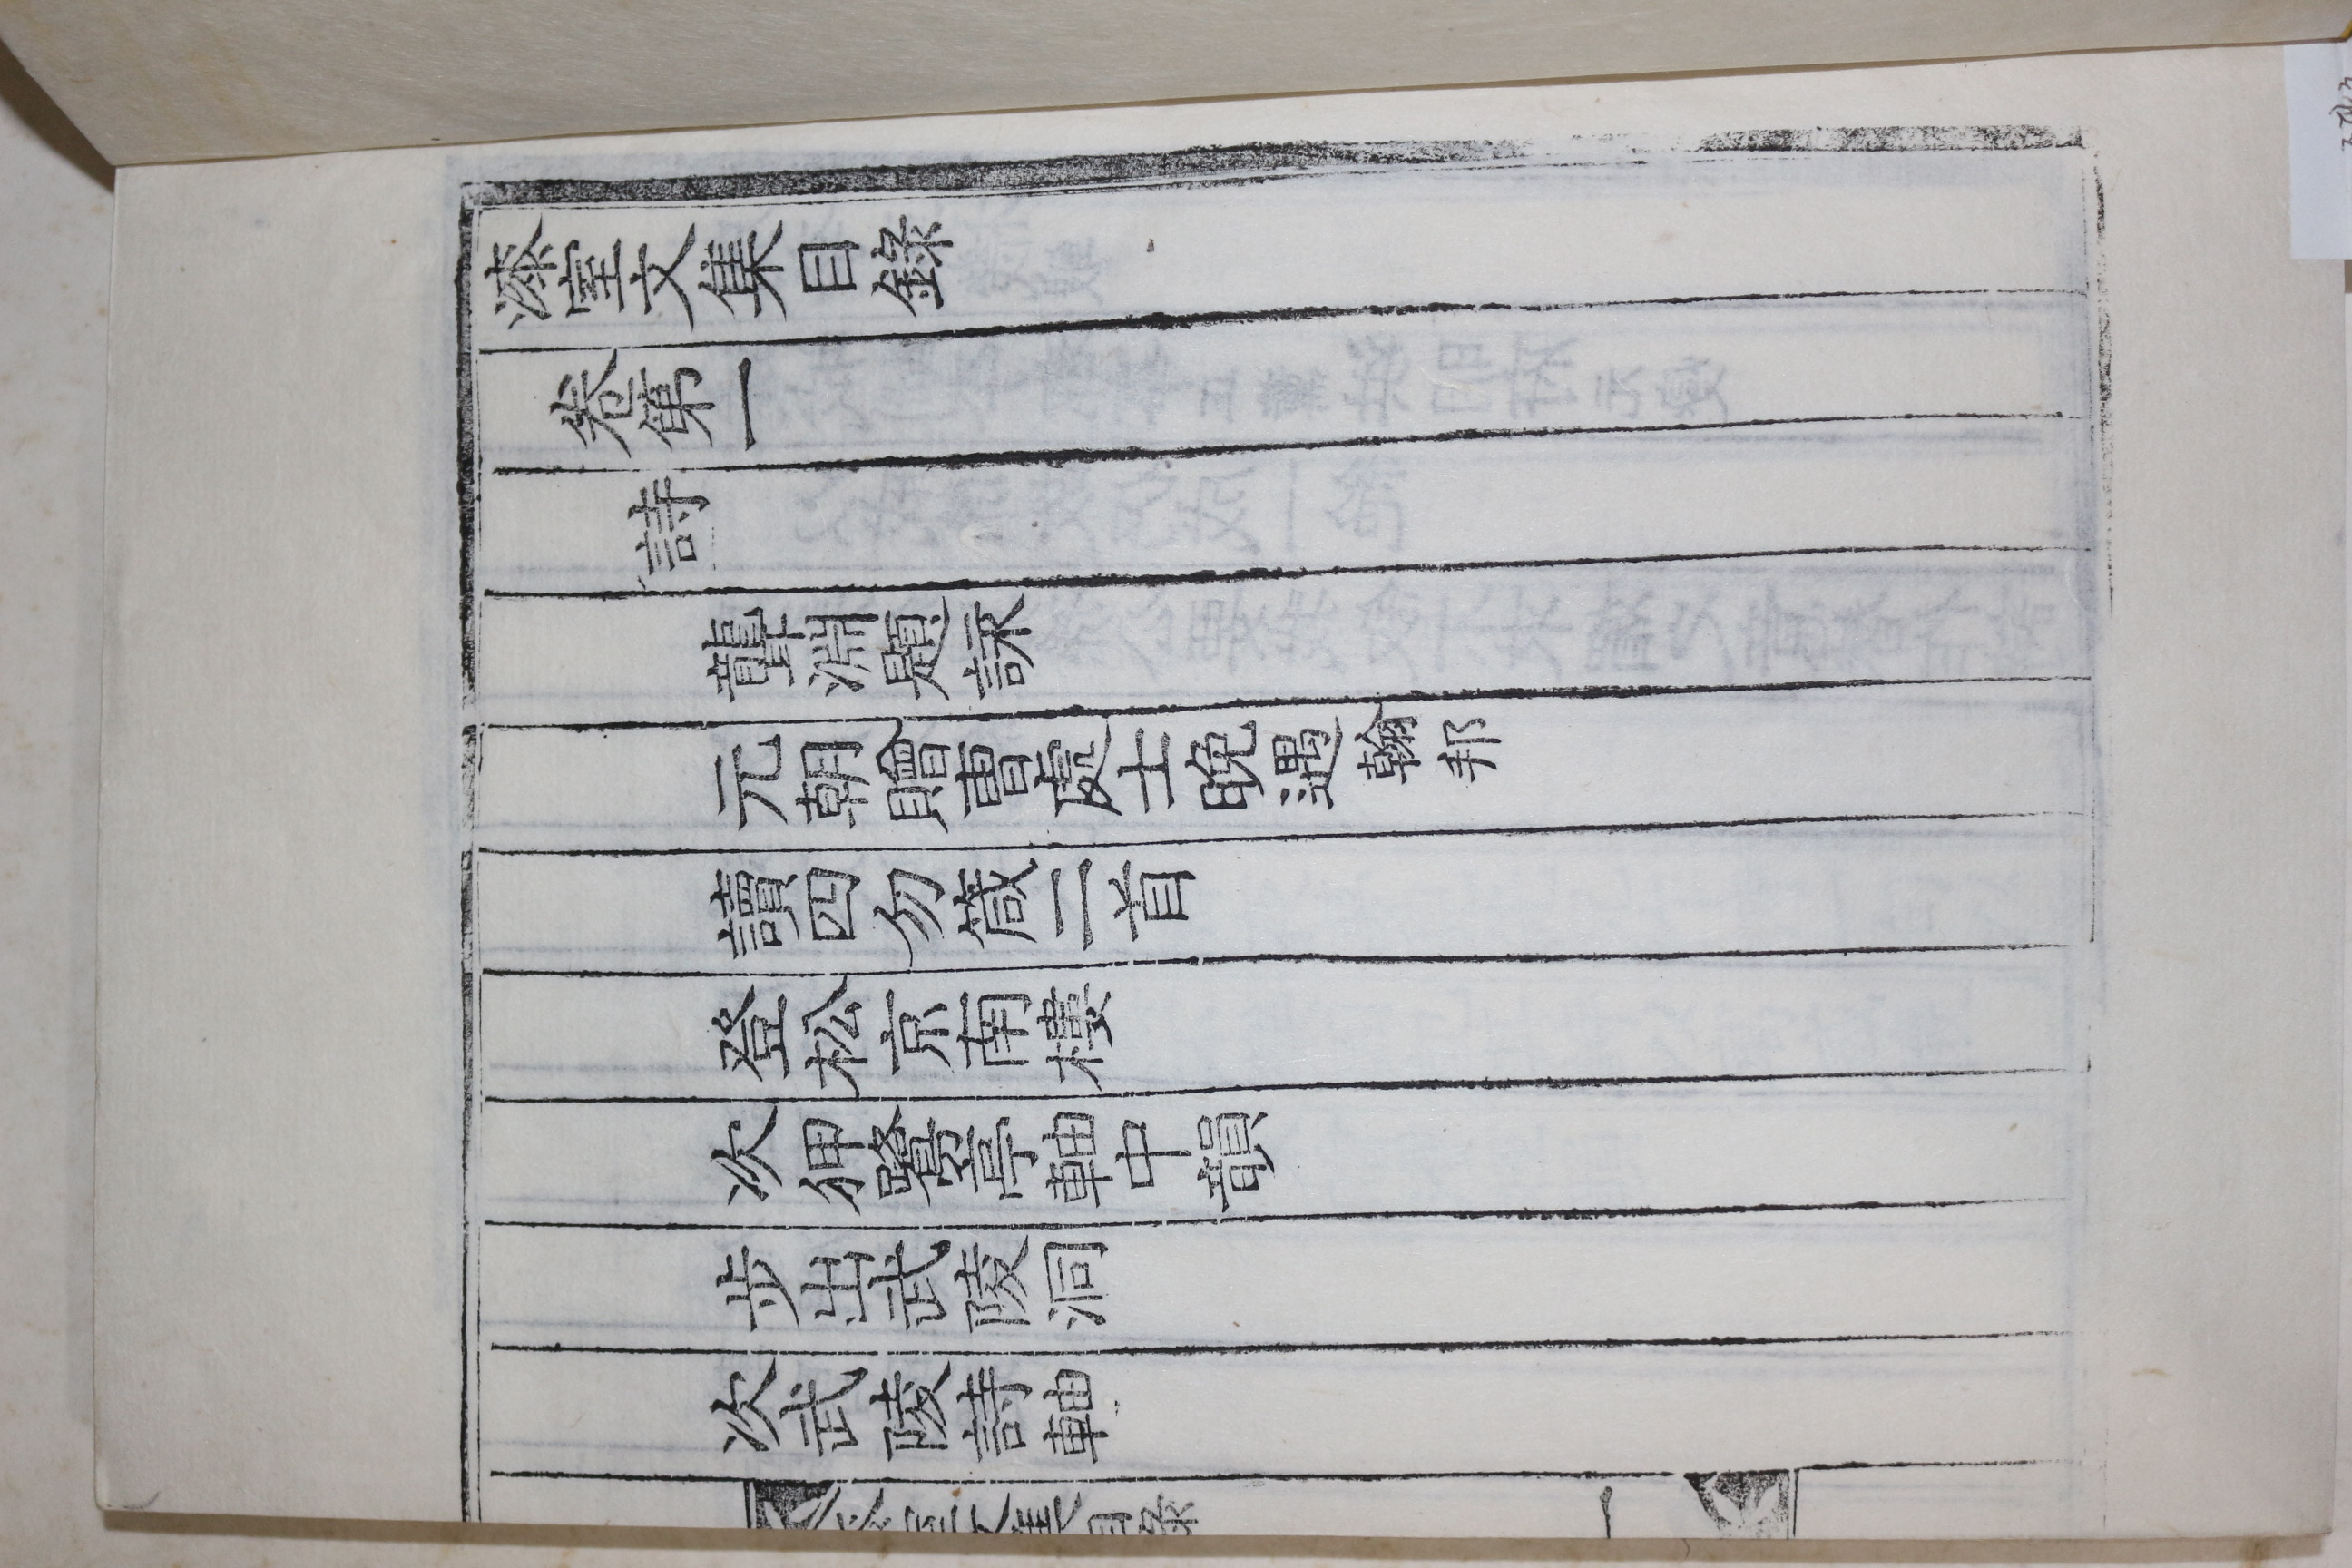 漆室文集目錄
卷第一
詩
聾淵題詠
元朝贈曺處士晩遇翰邦
讀四勿箴二首
登松京南樓
次狎鷺亭軸中韻
步出武陵洞
次武陵詩軸
漆室文集目錄
一